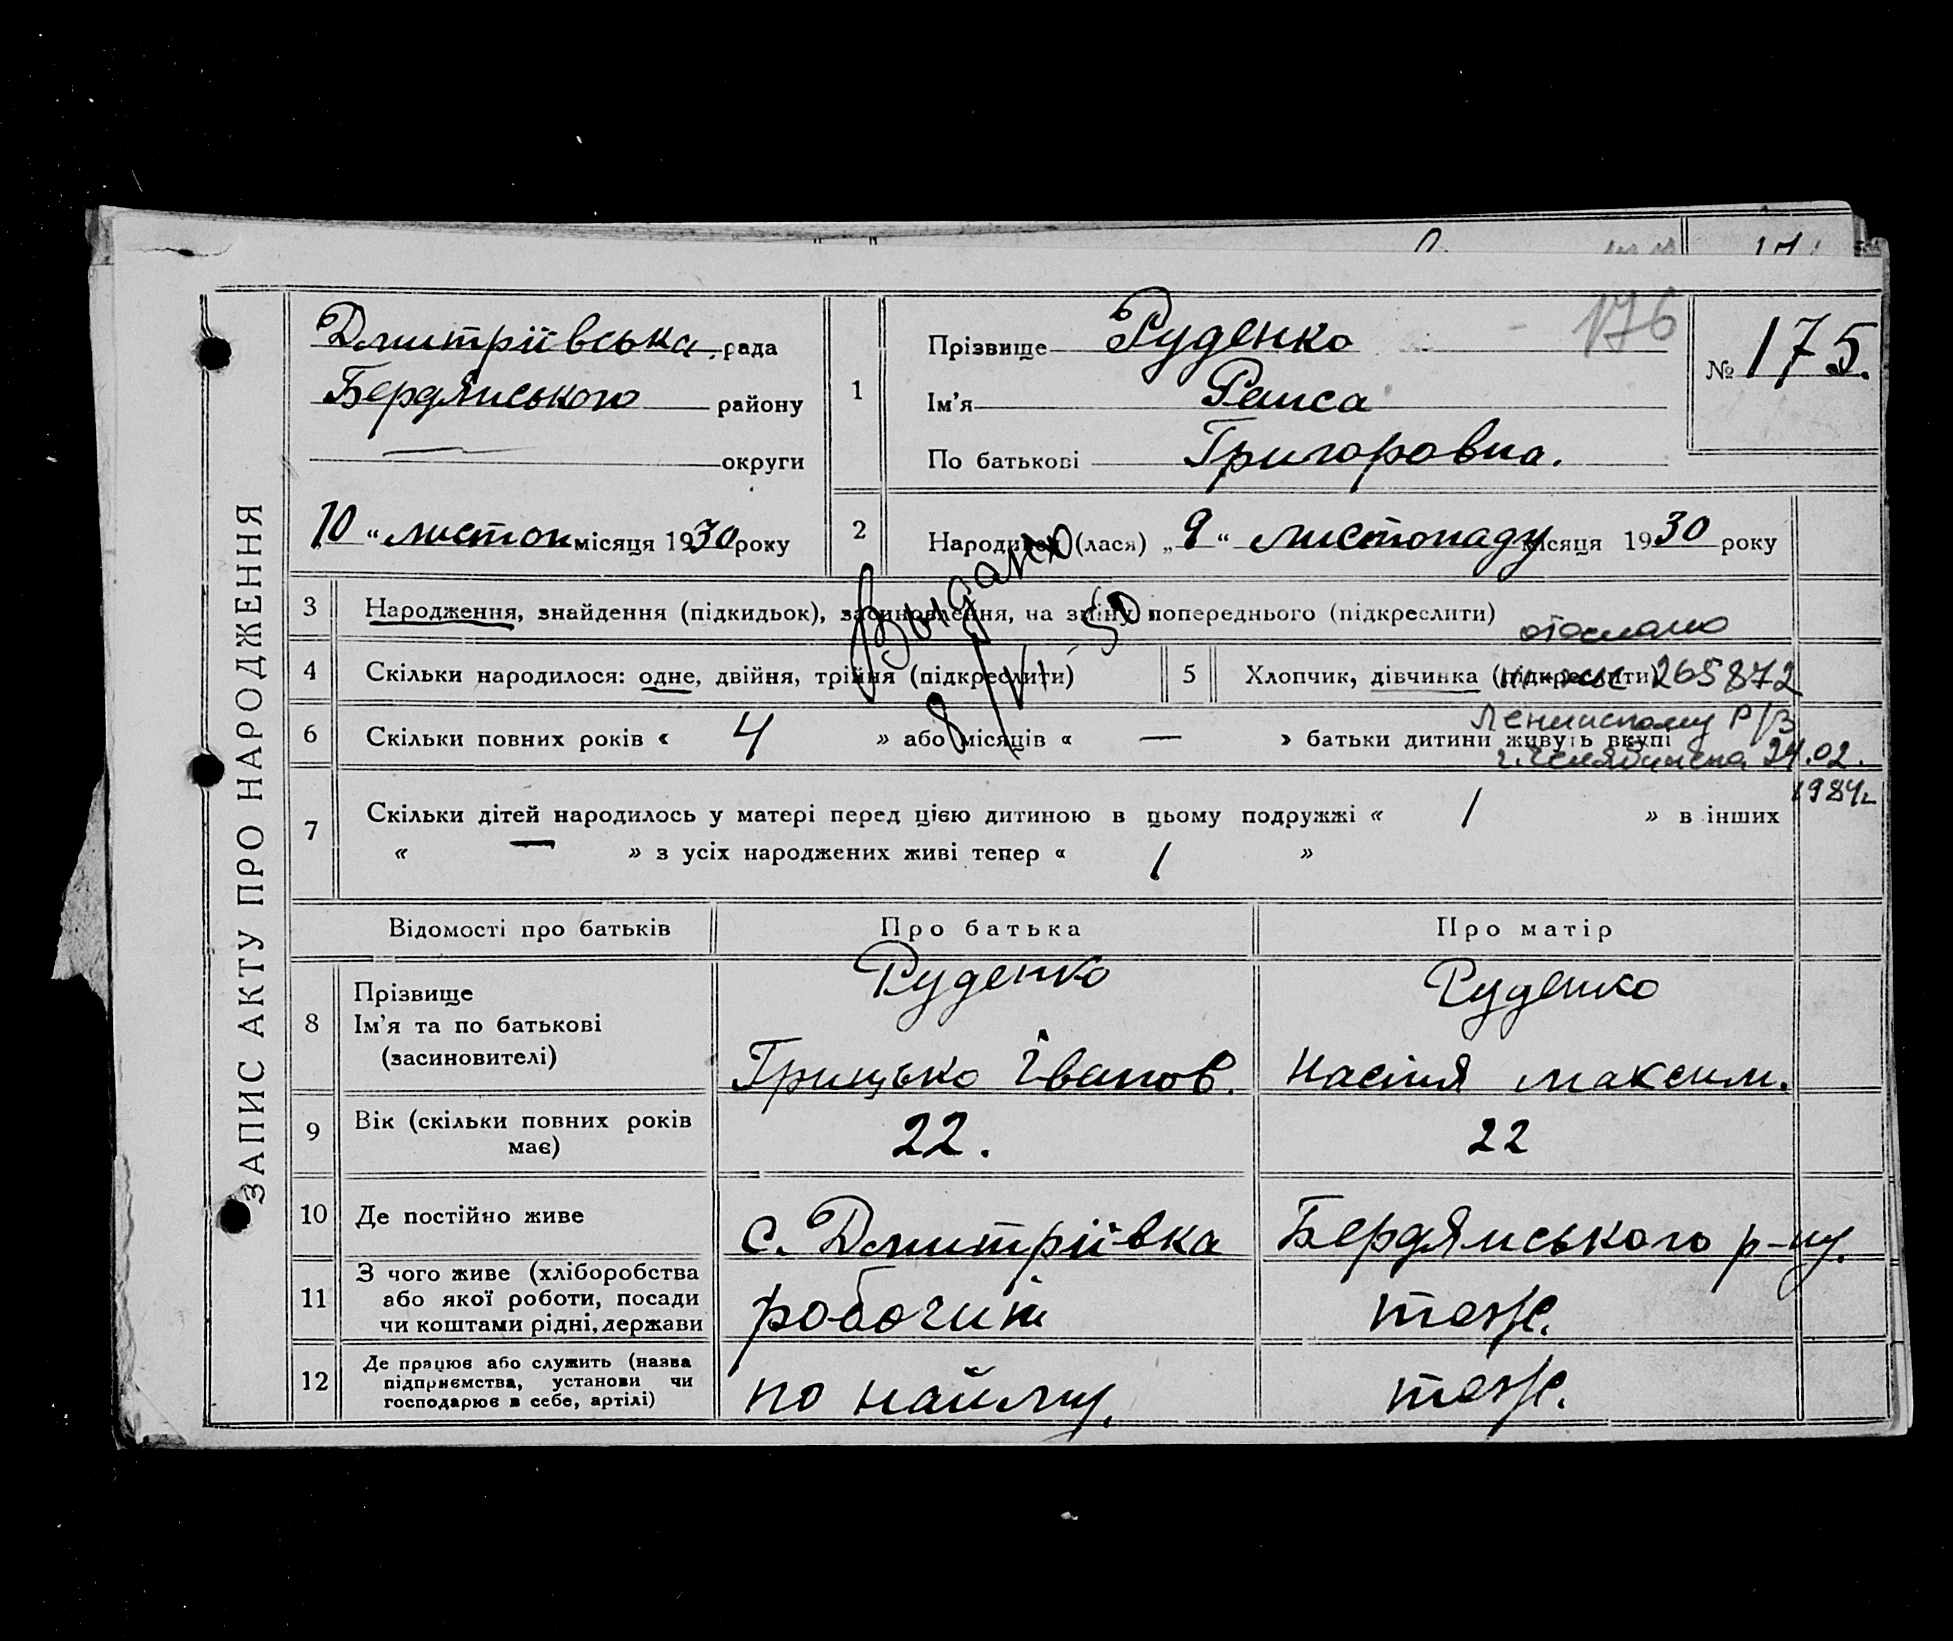 ЗАПИС АКТУ ПРО НАРОДЖЕННЯ
Дмитріївська рада
Бердянського району
округи
10 " листоп місяця 1930 року
1
Прізвище Руденко
Ім'я Раиса
По батькові Григоровна.
176
№ 175.
2 Народився (лася) „ 9 " листопаду місяця 1930 року
Видано
8/VI - 50
3 Народження, знайдення (підкидьок), засиновлення, на зміну попереднього (підкреслити)
отослано
4 Скільки народилося: одне, двійня, трійня (підкреслити)
5 Хлопчик, дівчинка (підкреслити)
265872
Ленинскому Р/З
6 Скільки повних років « 4 » або місяців « — » батьки дитини живуть вкупі
г. Челябинска 24.02.
1984г
7 Скільки дітей народилось у матері перед цією дитиною в цьому подружжі « 1 » в інших
« — » з усіх народжених живі тепер « 1 »
Відомості про батьків Про батька Про матір
8 Прізвище
Ім'я та по батькові
(засиновителі)
Руденко
Грицько Іванов.
Руденко
Насіня максим.
9 Вік (скільки повних років
має)
22. 22
10 Де постійно живе с. Дмитріївка Бердянського р-ну.
11 З чого живе (хліборобства
або якої роботи, посади
чи коштами рідні, держави
робочий теж.
12 Де працює або служить (назва
підприємства, установи чи
господарює в себе, артілі)
по найму. теж.